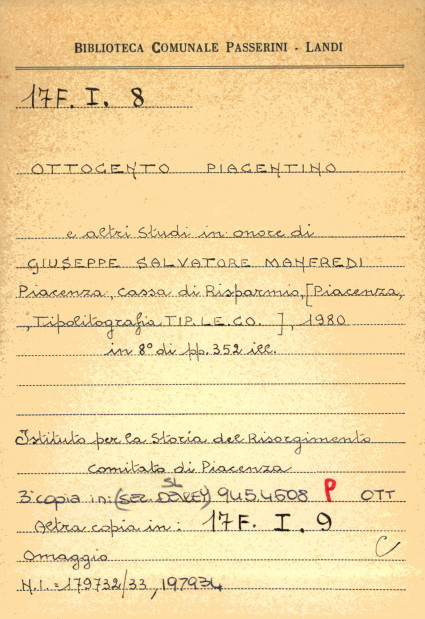 BIBLIOTECA COMUNALE PASSERINI - LANDI
17F. I. 8
OTTOCENTO PIACENTINO
e altri studi in onore di
GIUSEPPE SALVATORE MANFREDI
Piacenza, Cassa di Risparmio, [Piacenza,
, Tipolitografia TIP.LE.CO. ], 1980
in 8° di pp. 352 ill.
Istituto per la Storia del Risorgimento
Comitato di Piacenza
SL
3ª copia in: 945.4608 P OTT
Altra copia in: 17F. I. 9
Omaggio
N.I. = 179732/33, 197934